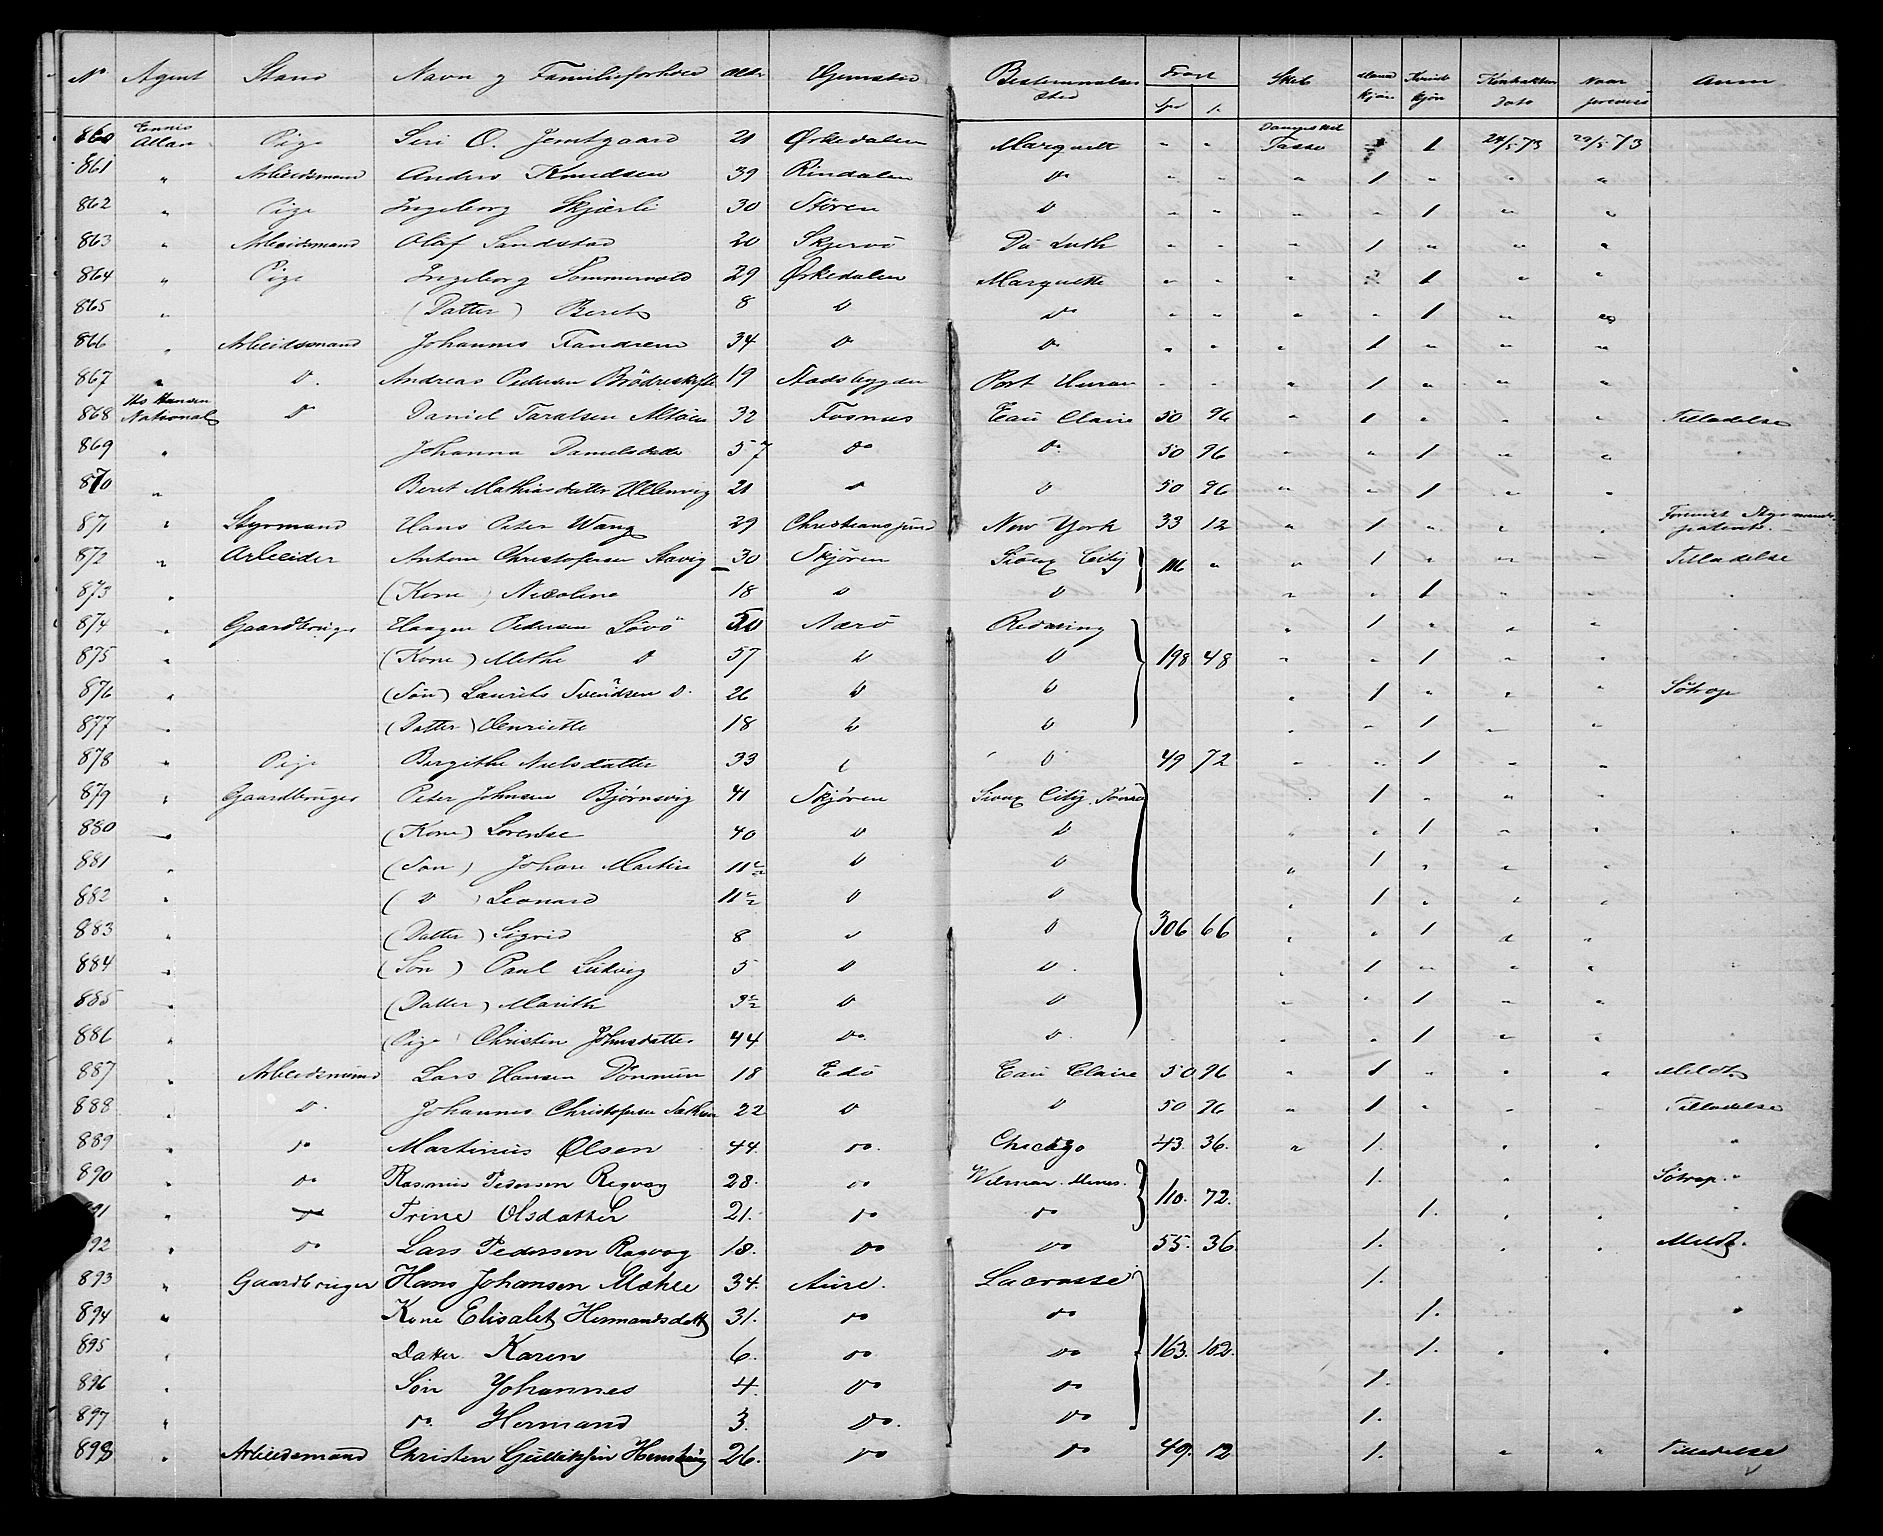 No Agent Stand Navn og Familieforhold Alder Hjemsted Bestemmelses Sted Fragt Spd s. Skib Mand kjøn Kvinde kjøn Kontraktens Dato Naar Anm
860 Ennis Allan Pige Siri O. Jemtgaard 21 Ørkedalen Marquett " " Dampskib Tasso 1 24/5 73 29/5 73
861 " Arbeidsmand Anders Knudsen 39 Rindalen do " " " 1 " " "
862 " Pige Ingeborg Skjærli 30 Støren D " " " " 1 " "
863 " Arbeidsmand Olaf Sandstad 20 Skjervö Du Luth " " " 1 " " "
864 " Pige Ingeborg Sommervold 29 Ørkedalen Marquette " " " 1 " "
865 " (Datter) Beret 8 D Do " " " " 1 " "
866 " Arbeidsmand Johannes Fandrem 34 D Do " " " 1 " " "
867 " D. Andreas Pedersen Brödreskift 19 Stadsbygden Port Huron " " " 1 " " "
868 Hs Hansen National D Daniel Taralsen 32 Fosnæs Eau Claire 50 96 " 1 " " " Tilladelse
869 " Johanna Danielsdatter 57 Do Do 50 96 " " 1 " " "
870 " Beret Mathiasdatter Ullenvig 21 D D 50 96 " " 1 " "
871 " Styrmand Hans Peter Wang 29 Christianssund New York 33 12 " 1 " " " Forevist Styrmands patent
872 " Arbeider Anton Christofersen Stavig 30 Skjören Sioux City " " 1 " " " Tilladelse
873 " (Kone) Nicoline 18 D D " " 1 " " "
874 " Gaardbruger Haagen Pedersen Lövö 50 Nærö Redwing " 1 " " "
875 " (Kone) Methe D 57 D D 198 48 " " 1 " " "
876 " (Søn) Laurits Svendsen D. 26 D D " 1 " " " Søtrop
877 " (Datter) Henriette 18 D D " " 1 " "
878 " Pige Birgithe Nielsdatter 33 D 49 72 " " 1 " "
879 " Gaardbruger Peter Johnsen Bjørnsvig 41 Skjören Sioux City 1 " " "
880 " (Kone) Lorentse 40 D D " " 1 " "
881 " (Søn) Johan Martin 11½ D D " 1 " " "
882 " ( D ) Leonard 11½ D D " 1 " " "
883 " (Datter) Sigrid 8 D D 306 66 " " 1 " "
884 " (Søn) Paul Ludvig 5 D D " 1 " " "
885 " (Datter) Marith D D " " 1 " "
886 " (Pige) Christin Johnsdatter 44 Do. D. " " 1 " "
887 " Arbeidsmand Lars Hansen 18 Edö Eau Claire 50 96 " 1 " " " Meldt
888 " D. Johannes Christofersen 22 D D 50 96 " 1 " " " Tilladelse
889 " Do Martinus Olsen 44. Do. Chicago 43. 36. " 1. " " "
890 " Do Rasmus Pedersen Regvag 28. Do Wilmar. Mines. 110. 72. 1. " Søtrop. "
891 " Trine Olsdatter 21. Do Do 1. " "
892 " Do Lars Pedersen Ragvag 18. Do Do 55. 36 1. " " Meldt.
893 " Gaardbruger Hans Johansen Mæhle 34. Aure. Lacrosse 1.
894 " Kone Elisabet Hermandsdatt 31. Do Do 1. "
895 " Datter Karen 6. Do Do 163. 102. 1. " "
896 " Søn Johannes 4. Do Do 1.
897 " Do. Hermand 3. Do. Do 1.
898 " Arbeidsmand Christen Gullikssen 26. Do Do 49. 12 1. " " Tilladelse